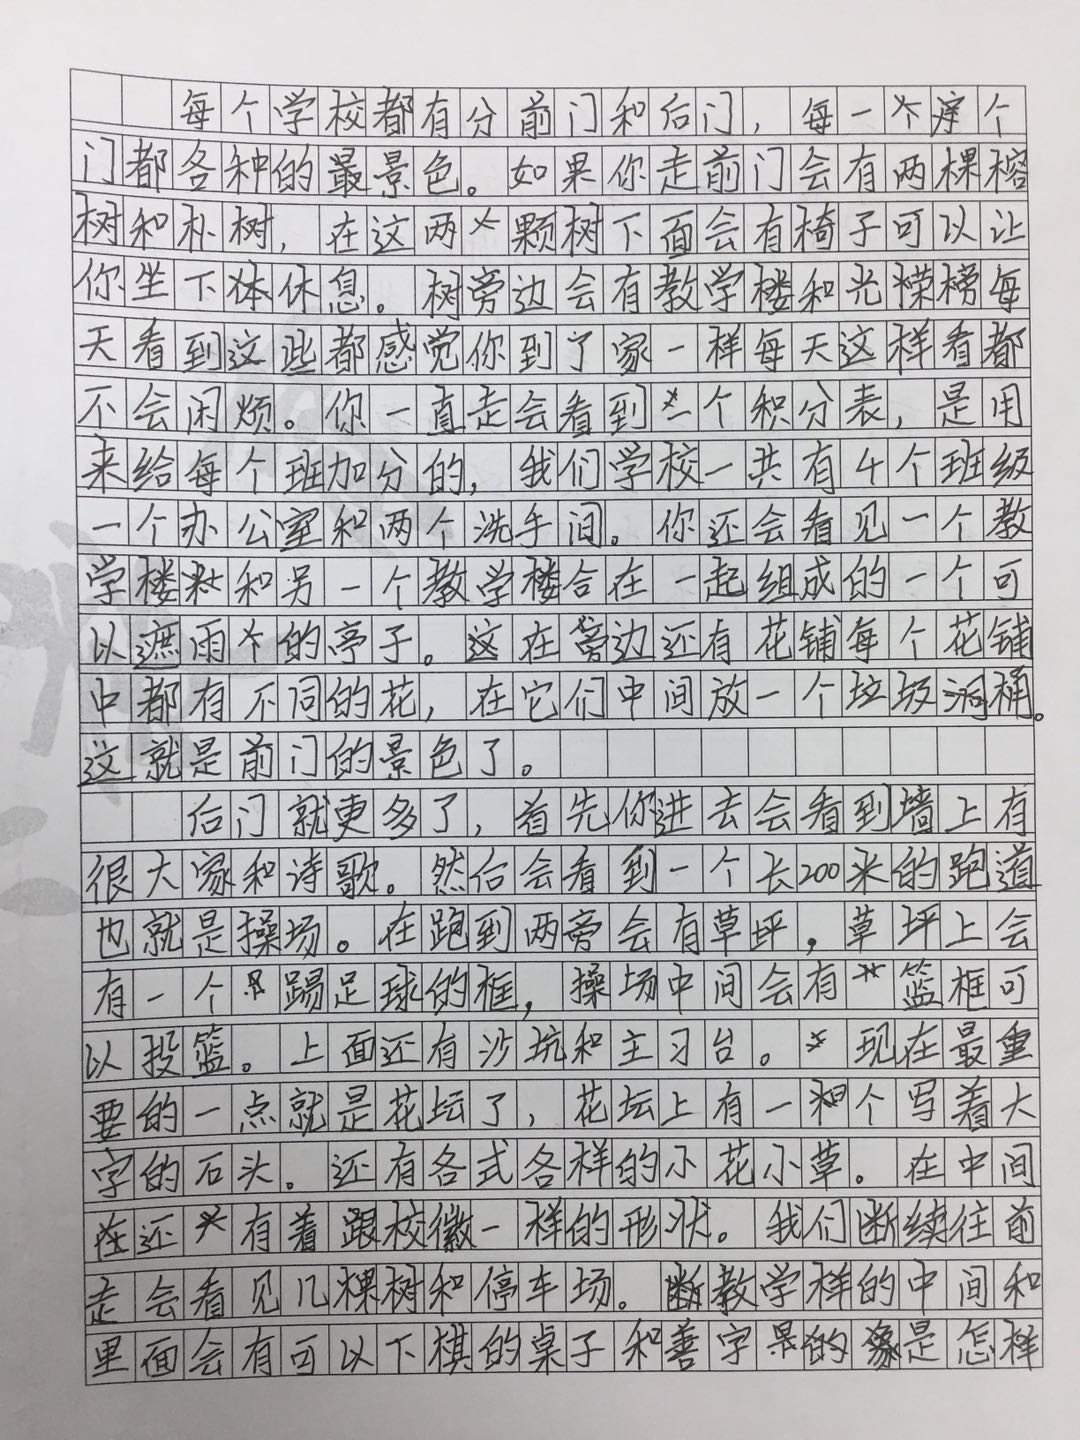 每个学校都有分前门和后门，每一个
门都各种的最景色。如果你走前门会有两棵榕
树和朴树，在这两颗树下面会有椅子可以让
你坐下体休息。树旁边会有教学楼和光荣榜每
天看到这些都感觉你到了家一样每天这样看都
不会闲烦。你一直走会看到一个积分表，是用
来给每个班加分的，我们学校一共有4个班级
一个办公室和两个洗手间。你还会看见一个教
学楼和另一个教学楼合在一起组成的一个可
以遮雨的亭子。这在旁边还有花铺每个花铺
中都有不同的花，在它们中间放一个垃圾桶。
这就是前门的景色了。
后门就更多了，首先你进去会看到墙上有
很大家和诗歌。然后会看到一个长200米的跑道
也就是操场。在跑到两旁会有草坪，草坪上会
有一个踢足球的框，操场中间会有篮框可
以投篮。上面还有沙坑和主习台。现在最重
要的一点就是花坛了，花坛上有一个写着大
字的石头。还有各式各样的小花小草。在中间
还有着跟校徽一样的形状。我们断续往前
走会看见几棵树和停车场。教学样的中间和
里面会有可以下棋的桌子和善字的像是怎样